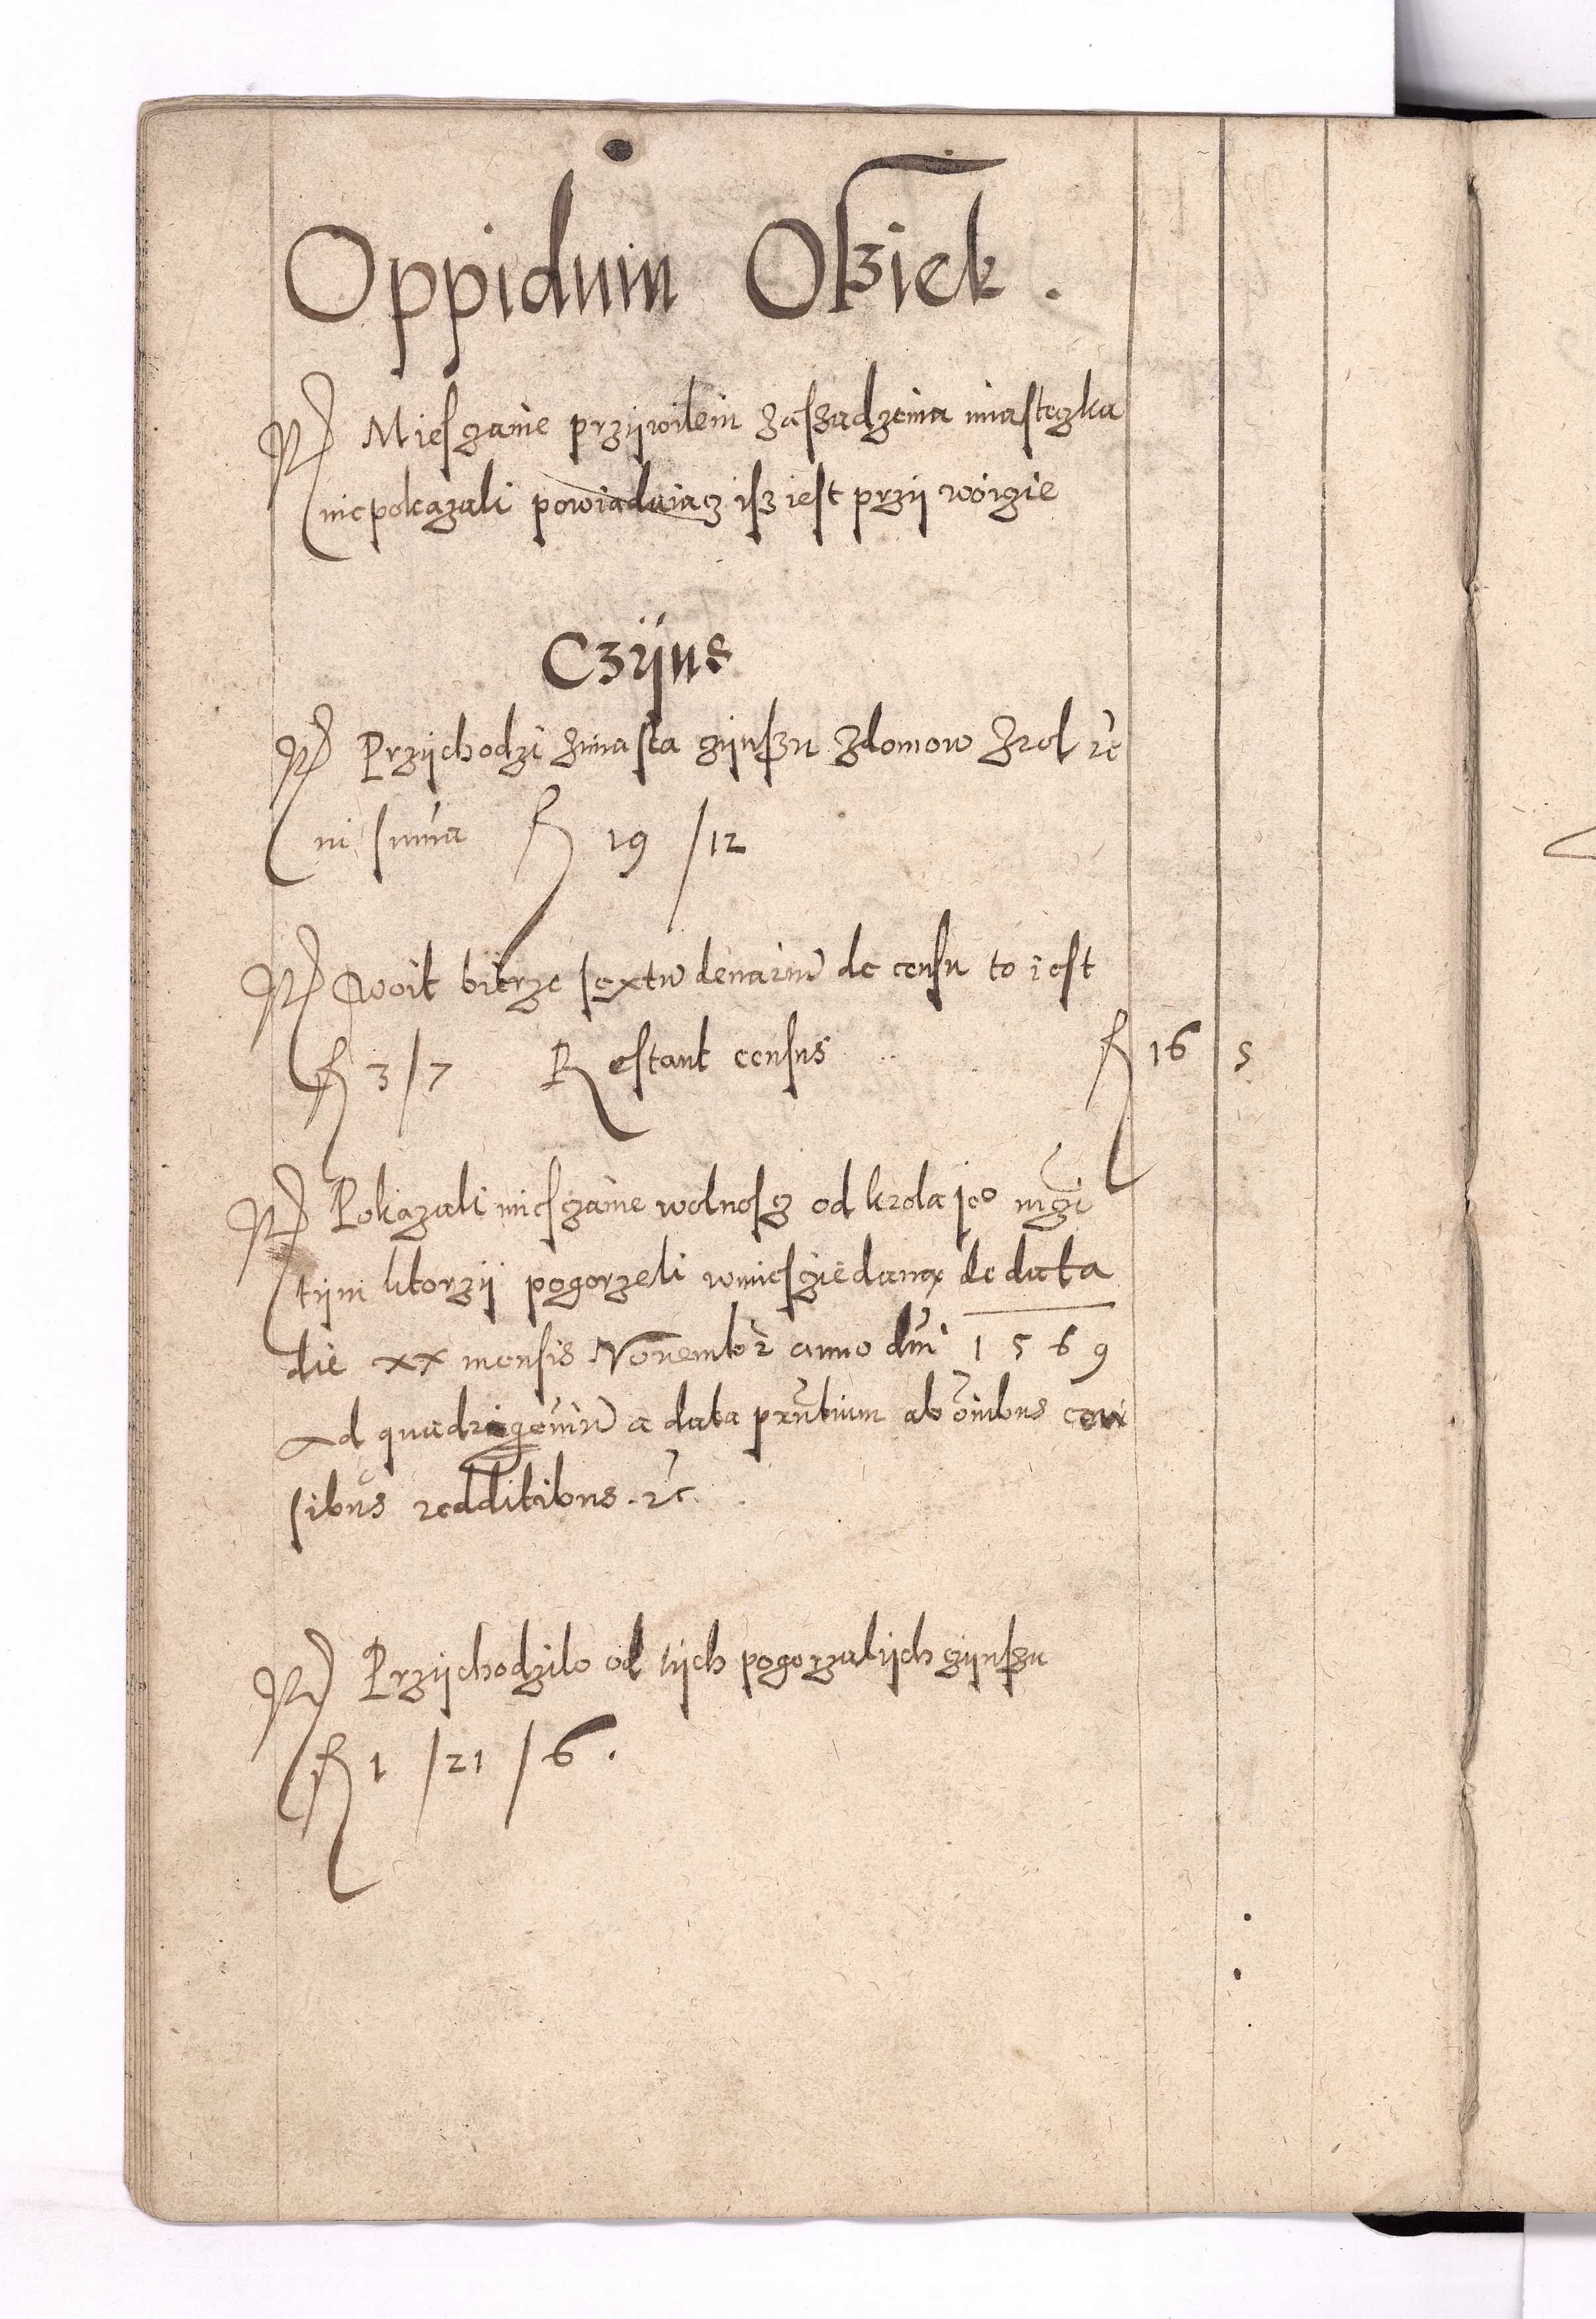 Oppidum Osziek.
Miesczanie przywilein zaszadzenia miasteczka
niepokazali powiadaiącz isz iest przÿ wóicie
Czÿns
Przÿchodzi zmiasta czÿnszu zdomow zrol ꝛc
in suma fl 19 / 12
Woit bierze sextū denariū de censu to iest
fl 3 / 7 Restant census fl 16 5
Pokazali miesczanie wolnoscz od krola jeo mczi
tÿm ktorzÿ pogorzeli wmiesczie daną de data
die xx mensis Novembr anno dni 1569
Ad quadrigeniū a data pñtium ab oibus cen
sibus redditibus ꝛc.
Przÿchodzilo od tÿch pogorzalÿch czÿnszu
fl 1 / 21 / 6.